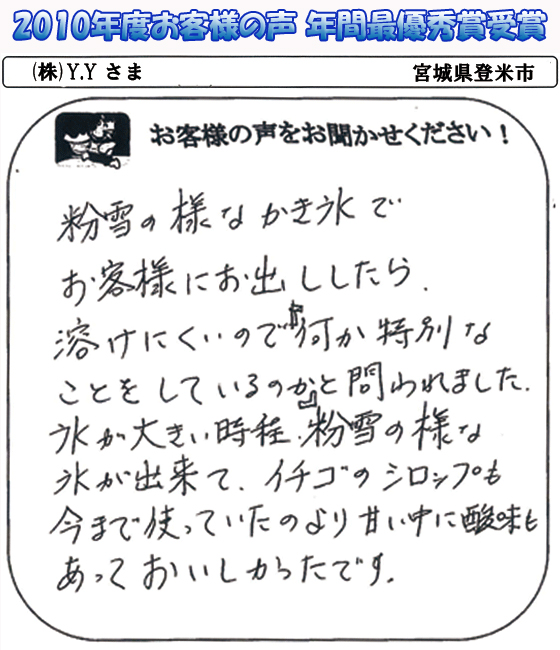 2010年度お客様の声 年間最優秀賞受賞
(株)Y.Y さま 宮城県登米市
お客様の声をお聞かせください!
粉雪の様なかき氷で
お客様にお出ししたら、
溶けにくいので「何か特別な
ことをしているのか」と問われました。
氷が大きい時程、粉雪の様な
氷が出来て、イチゴのシロップも
今まで使っていたのより甘い中に酸味も
あっておいしかったです。